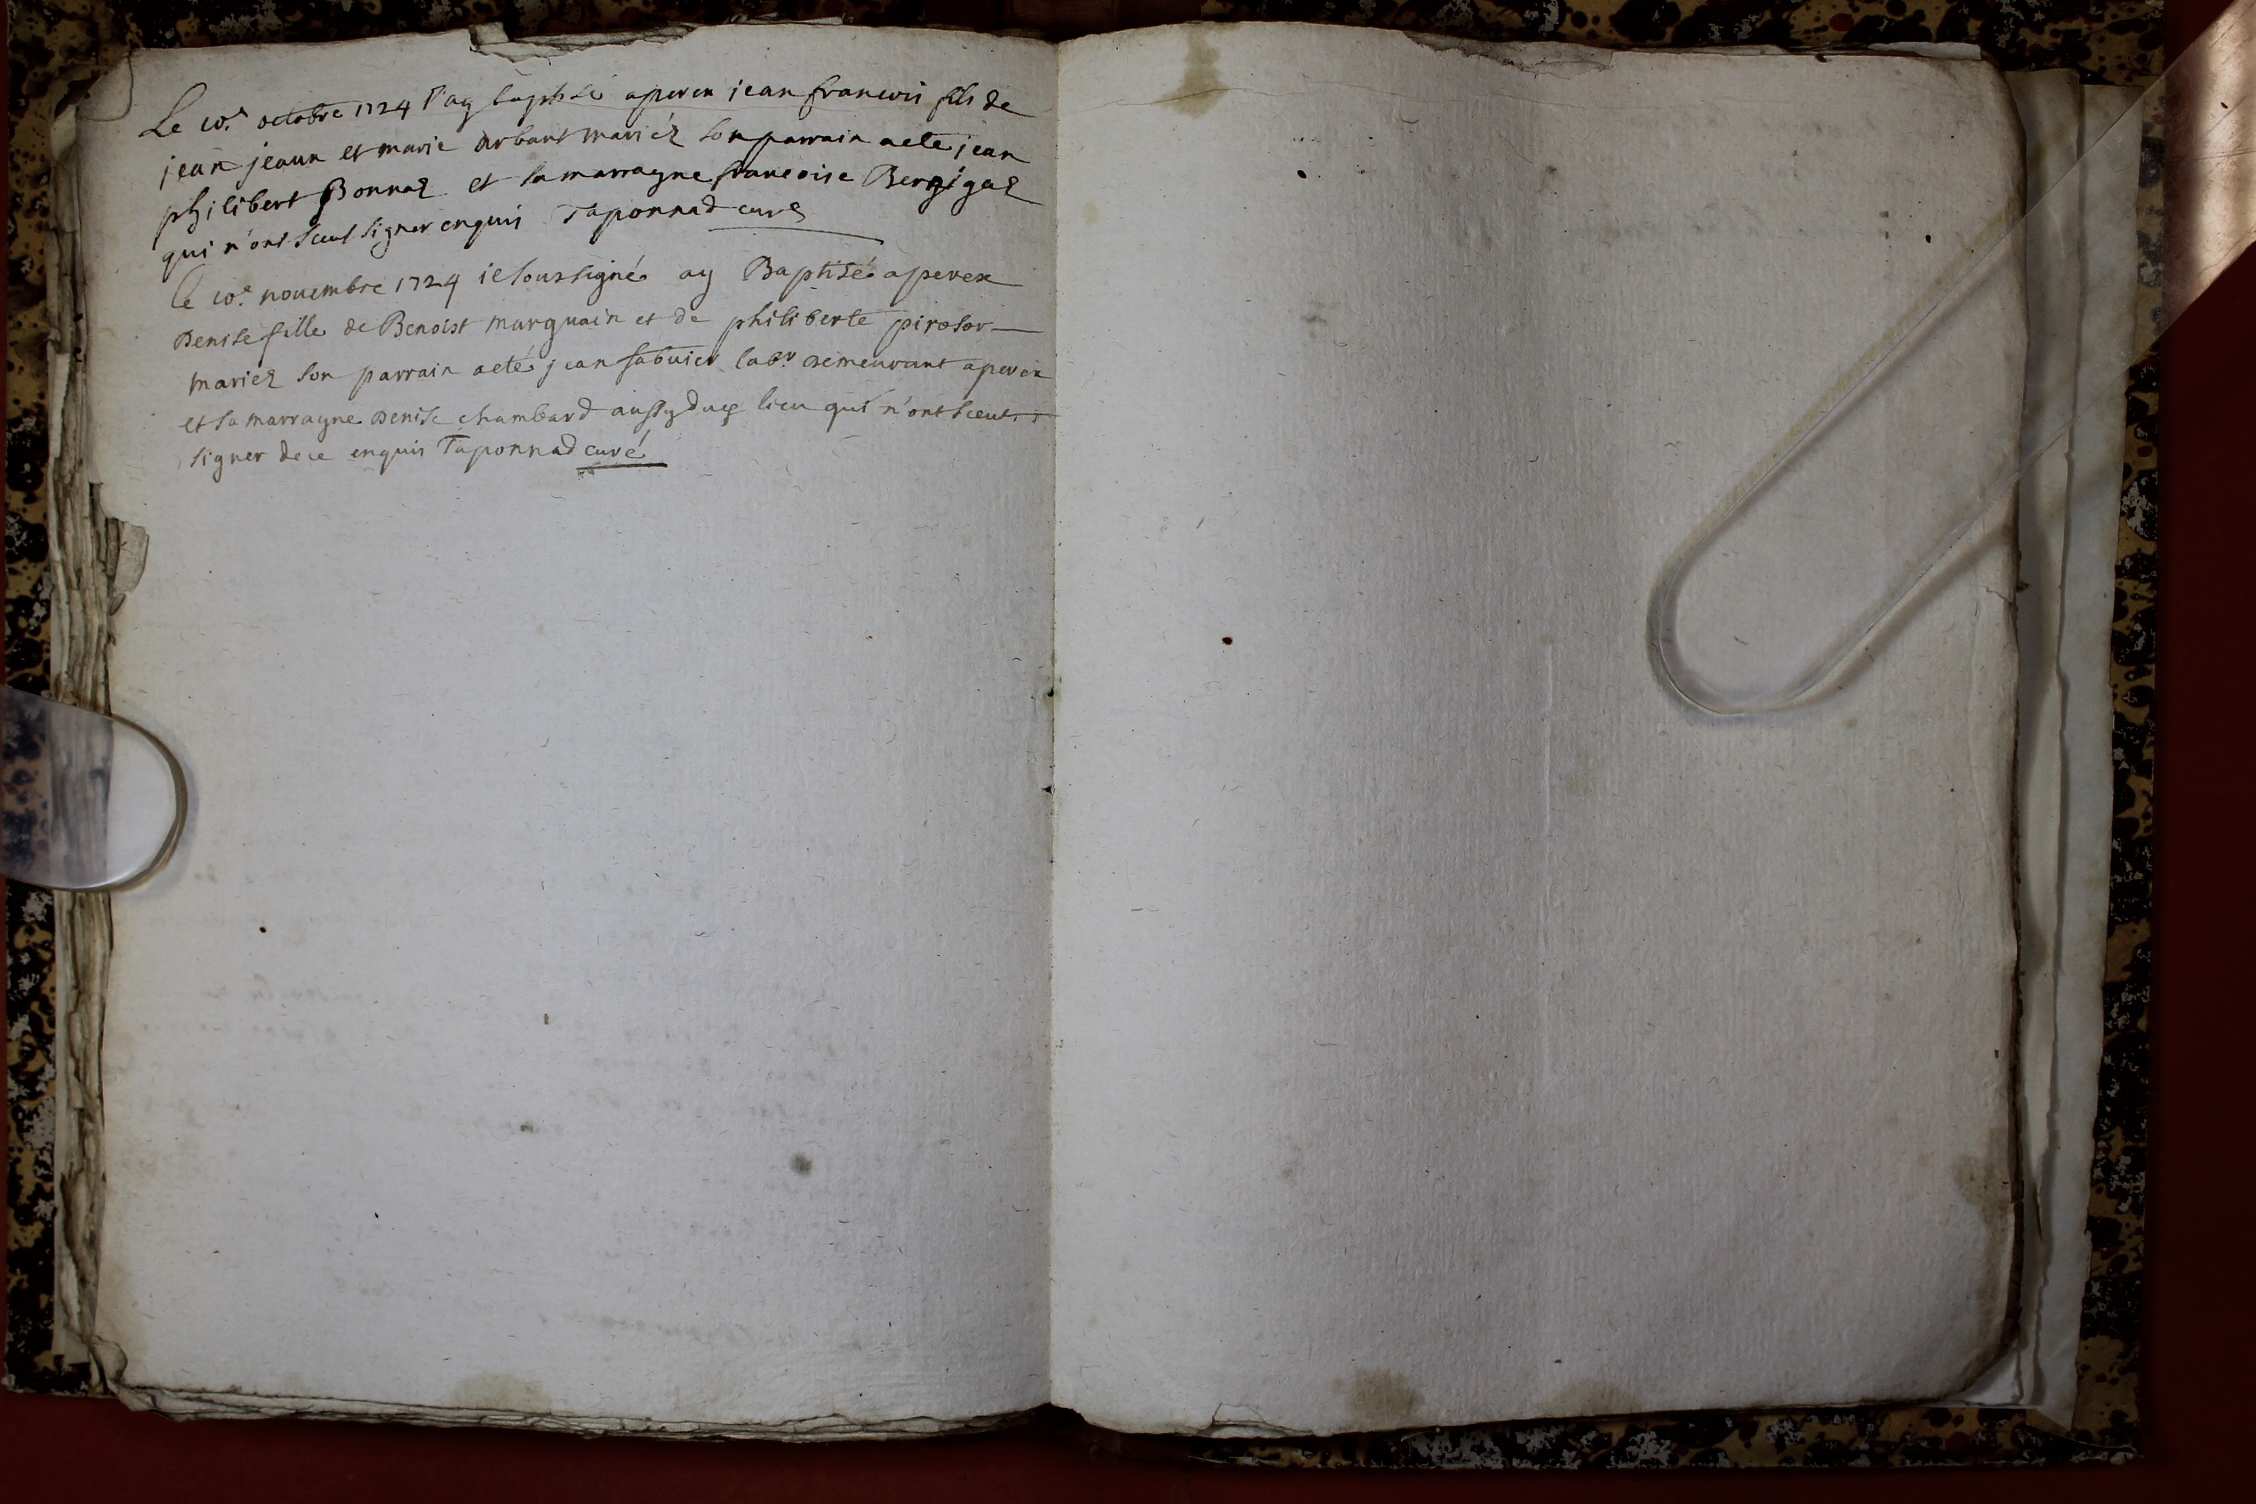 Le 10.e octobre 1724 J'ay baptisé a peren jean francois fils de
jean jeaun et marie arbant mariéz son parrain a eté jean
philibert Bonnaz et sa marrayne francoise Bergigaz
qui n'ont sceut signer enquis Taponnad curé
le 10.e novembre 1724 ie soussigné ay Baptisé a perex
Denise fille de Benoist marguain et de philiberte pirosor
mariez son parrain a eté jean sabuier labr. demeurant a peren
et sa marrayne Denise chambard aussy dud lieu qui n'ont sceut
signer de ce enquis Taponnad curé